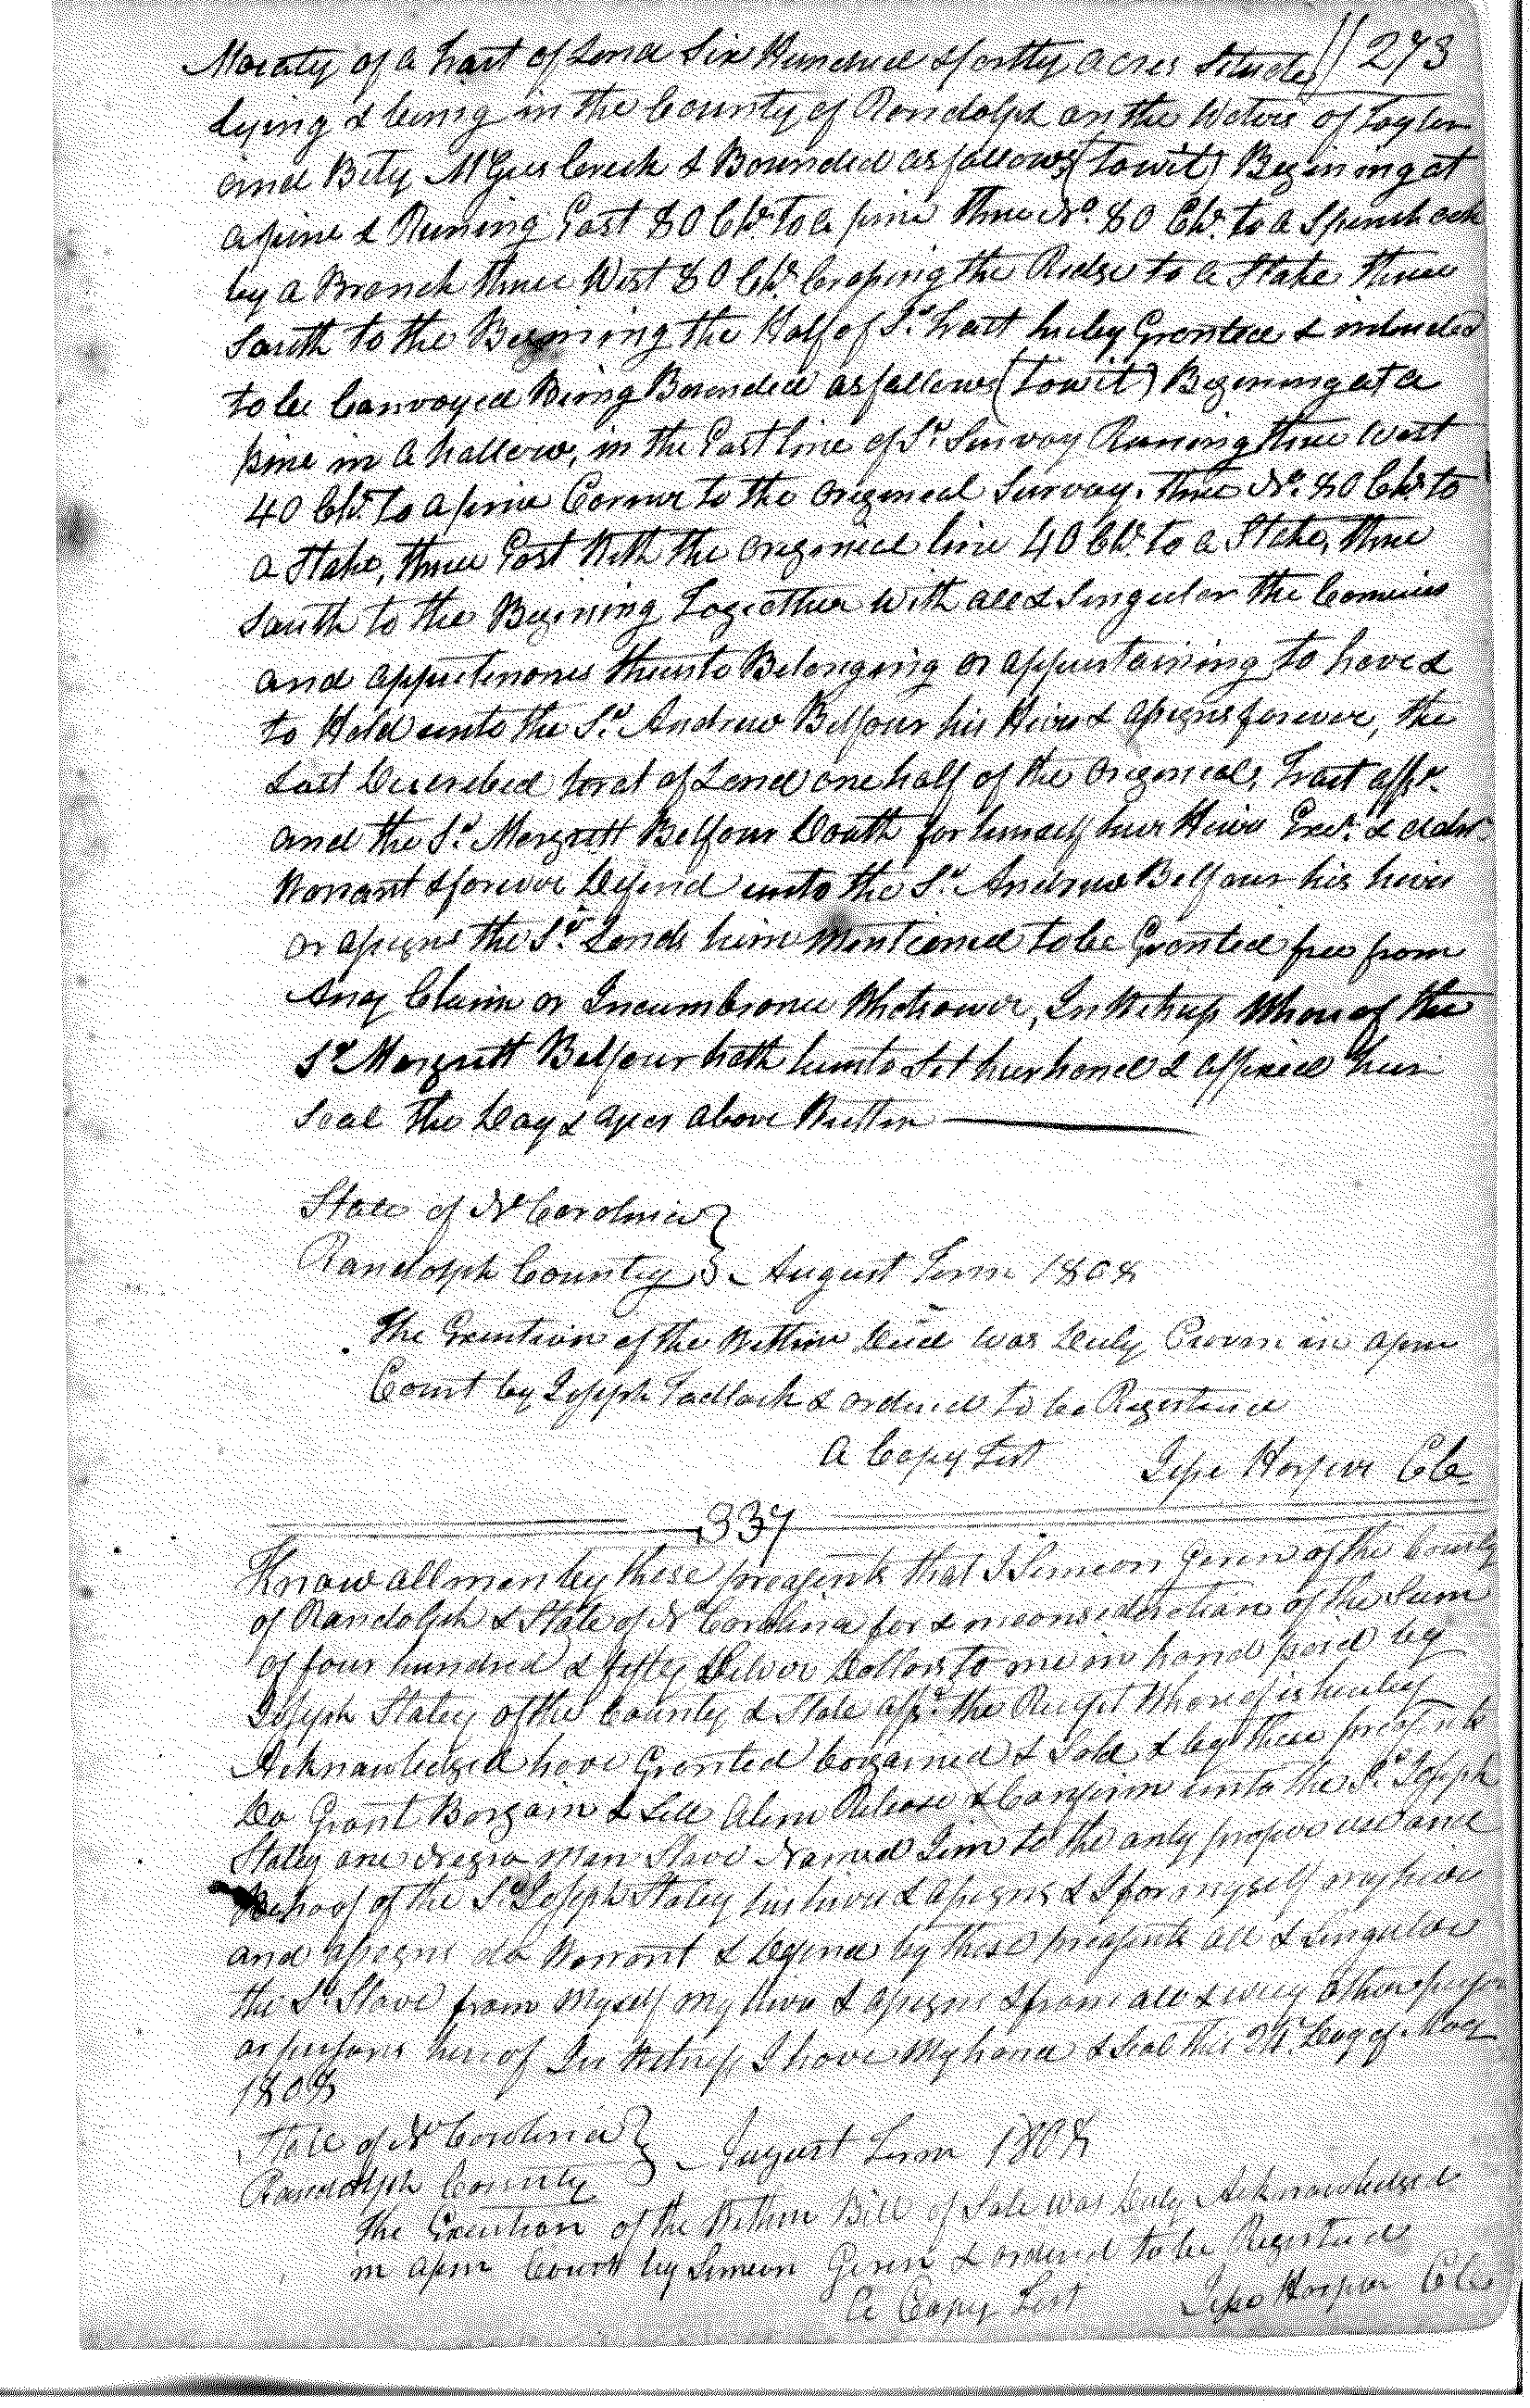 Moiaty of a tract of Land Six Hundred & fortty acres Situate // 273
Lying & being in the County of Randolph on the Waters of Taylors
and Bety McGees Creek & Bounded as follows (towit) Begining at
a pine & Runing East 80 Chs. to a pine thnce No. 80 Chs. to a Spanish oak
by a Branch thnce West 80 Chs. Crossing the Ridge to a Stake thnce
South to the Begining the Half of Sd. tract hereby Granted & intended
to be Convoyed Being Bounded as follows (towit) Begining at a
pine in a hallow, in the East line of Sd. Survay Runing thnce West
40 Chs. to a pine Corner to the original Survay. thnce No. 80 Chs. to
a Stake, thnce East With the original line 40 Chs. to a Stake, thnce
South to the Begining Togeather with all & Singular the
and appurtenances thereto Belonging or appurtaining to have &
to Hold unto the Sd. Andrew Belfour his Heirs & assigns forever, the
Last Described toract of Land one half of the original, tract affsd.
and the Sd. Margrett Belfour Douth for himself hur Heirs Exrs. & Admrs.
Warrant & forever Defend unto the Sd. Andrew Belfour his heirs
or assigns the Sd. Lands herein Mentioned to be Granted free from
Any Claim or Incumbrance Whatsoever, In Witness Whereof the
Sd. Margrett Belfour hath hereunto Set hur hand & affixed hur
Seal the Day & year above Written
State of No Carolina }
Randolph County } August Term 1808
The Execution of the Within Deed was Duly Proven in open
Court by Joseph Tadlock & ordered to be Registered
A Copy Test Jesse Harper Clk
337
Know all men by these presents that I Simeon Geren of the County
of Randolph & State of No Carolina for & in consideration of the Sum
of four hundred & fifty Silver Dollars to me in hand paid by
Joseph Staley of the County & State affsd. the Receipt Whereof is hereby
Acknowledged have Granted bargained & Sold & by these presents
Do Grant Bargain & Sell Alien Release & Confirm unto the Sd. Joseph
Staley one Negro Man Slave Named Jim to the only proper use and
Behoof of the Sd. Joseph Staley his heirs & assigns & I for myself my heirs
and assigns do Warrant & Defend by these presents all & Singular
the Sd. Slave from Myself My heirs & assigns & from all & every other person
or persons hereof In Witness I have My hand & Seal this 24. Day of May
1808
State of No Carolina }
Randolph County } August Term 1808
The Execution of the Within Bill of Sale was Duly Acknowledged
in open Court by Simeon Geren & ordered to be Registered
A Copy Test Jesse Harper Clk